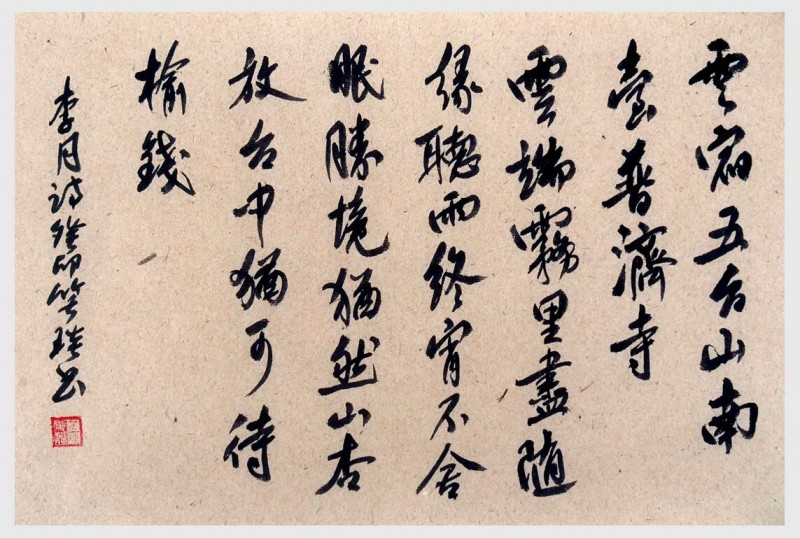 雲宿五台山南
臺普濟寺
雲端霧里盡隨
緣聽雨終宵不舍
眠勝境猶然山杏
放台中猶可待
榆錢
李月詩癸卯笑琰书